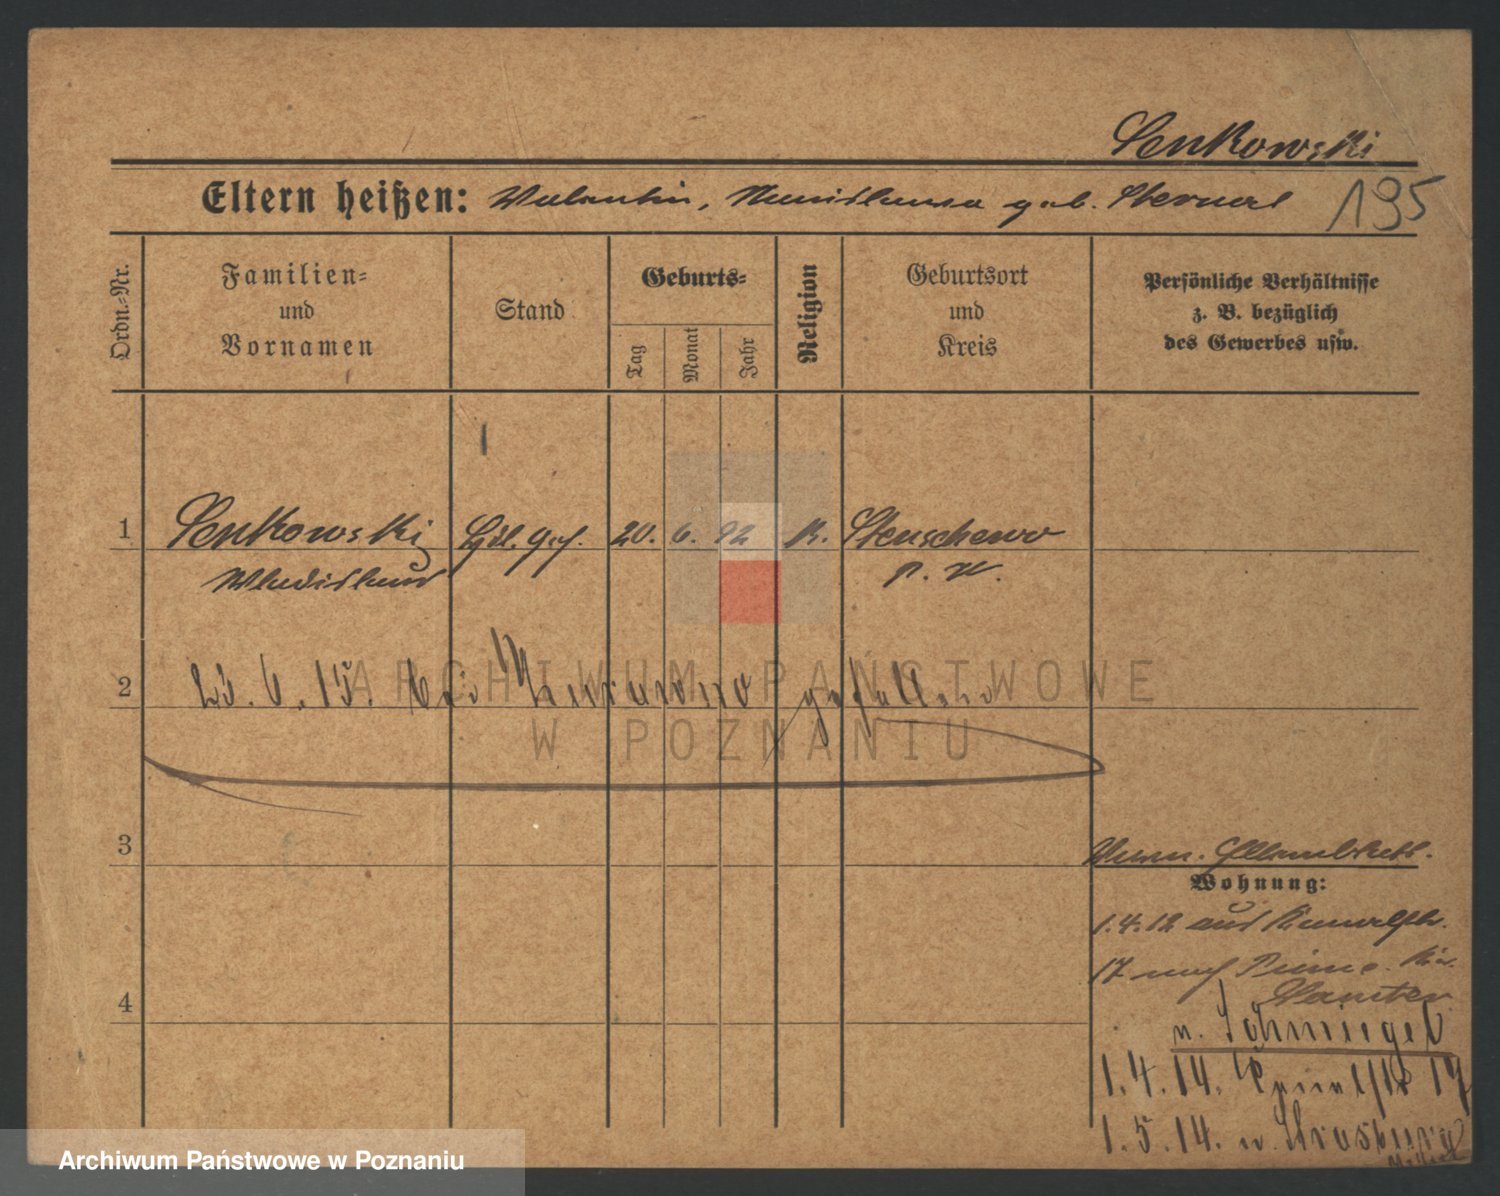 Senkowski
Eltern heißen: Valentin, Stanislawa geb. Sternal
195
Ordn.-Nr.
Familien-
und
Vornamen
Stand
Geburts-
Tag
Monat
Jahr
Religion
Geburtsort
und
Kreis
Persönliche Verhältnisse
z. B. bezüglich
des Gewerbes usw.
1 Senkowski 20. 6. 92 K. Stenschewo
Wladislaus P. W.
2 25. 6. 15. bei gefallen
3
Wohnung:
1.4.12 aus
17 nach Pinne. Kr.
Samter
4
n. Schmiegel
1.4.14. 19
1.5.14. n. Strasburg
ARCHIWUM PAŃSTWOWE
W POZNANIU
Archiwum Państwowe w Poznaniu